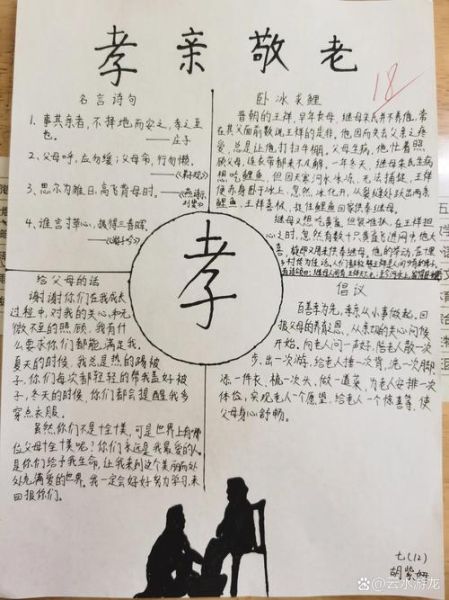 孝亲敬老
18
名言诗句
1、事其亲者，不择地而安之，孝之至
也。
——庄子
2、父母呼，应勿缓；父母命，行勿懒。
——《弟子规》
3、思尔为雏日，高飞背母时。
4、谁言寸草心，报得三春晖。
——《游子吟》
卧冰求鲤
晋朝的王祥，早年丧母，继母朱氏并不慈爱，常
在其父面前数说王祥的是非，他因而失去父亲之疼
爱，总是让他打扫牛棚。父母生病，他忙着照
顾父母，连衣带都来不及解。一年冬天，继母朱氏生病
想吃鲤鱼，但因天寒河水冰冻，无法捕捉，王祥
便赤身卧于冰上，忽然，冰化开，从裂缝处跃出两条
鲤鱼，王祥喜极，捉住鲤鱼回家供奉继母。
继母又想吃黄雀，但很难抓，在王祥担
心之时，忽然有数十只黄雀飞进网
孝
给父母的话
谢谢你们在我成长
过程中，对我的关心和无
微不至的照顾，每有什
么要求你们都能满足我，
夏天的时候，我总是热的踢被
子，你们每次都轻轻的帮我盖好被
子，冬天的时候，你们都会提醒我多
穿点衣服。
虽然你们不是十全十美，可是世界上有哪
位父母十全十美呢？你们永远是我最爱的人，
是你们给予我生命，让我来到这个美丽而处
处充满爱的世界。我一定会好好努力学习，来
回报你们。
倡议
百善孝为先，孝亲从小事做起，回
报父母的养育恩，从亲切的关心问候
开始，向老人问一声好，陪老人散一次
步、出一次游，给老人捶一次背，洗一次脚
添一件衣，梳一次头，做一道菜，为老人安排一次
体检，实现老人一个愿望，给老人一个惊喜等，使
父母身心舒畅。
七(12)
胡紫妍
百家号/云水游龙